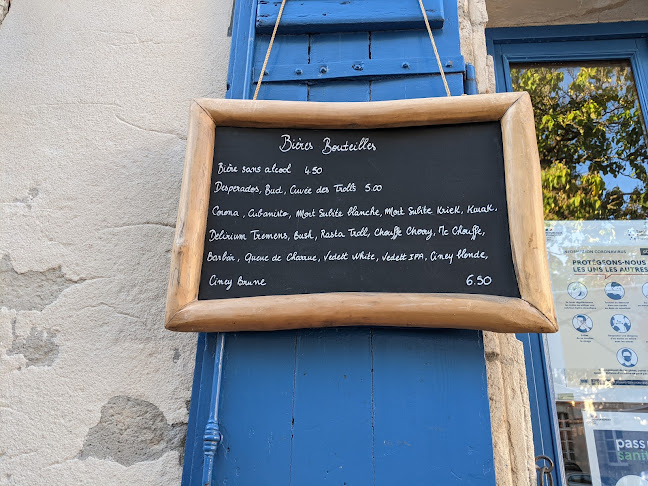 Bières Bouteilles
Bière sans alcool 4.50
Desperados, Bud, Cuvée des Trolls 5.00
Corona, Cubanisto, Mort Subite blanche, Mort Subite Kriek, Kwak,
Delirium Tremens, Bush, Rasta Troll, Chouffe Cherry, Mc Chouffe,
Barbār, Queue de Charrue, Vedett White, Vedett IPA, Ciney blonde,
Ciney Brune 6.50
INFORMATION CORONAVIRUS
PROTÉGEONS-NOUS
LES UNS LES AUTRES
pass
sanit